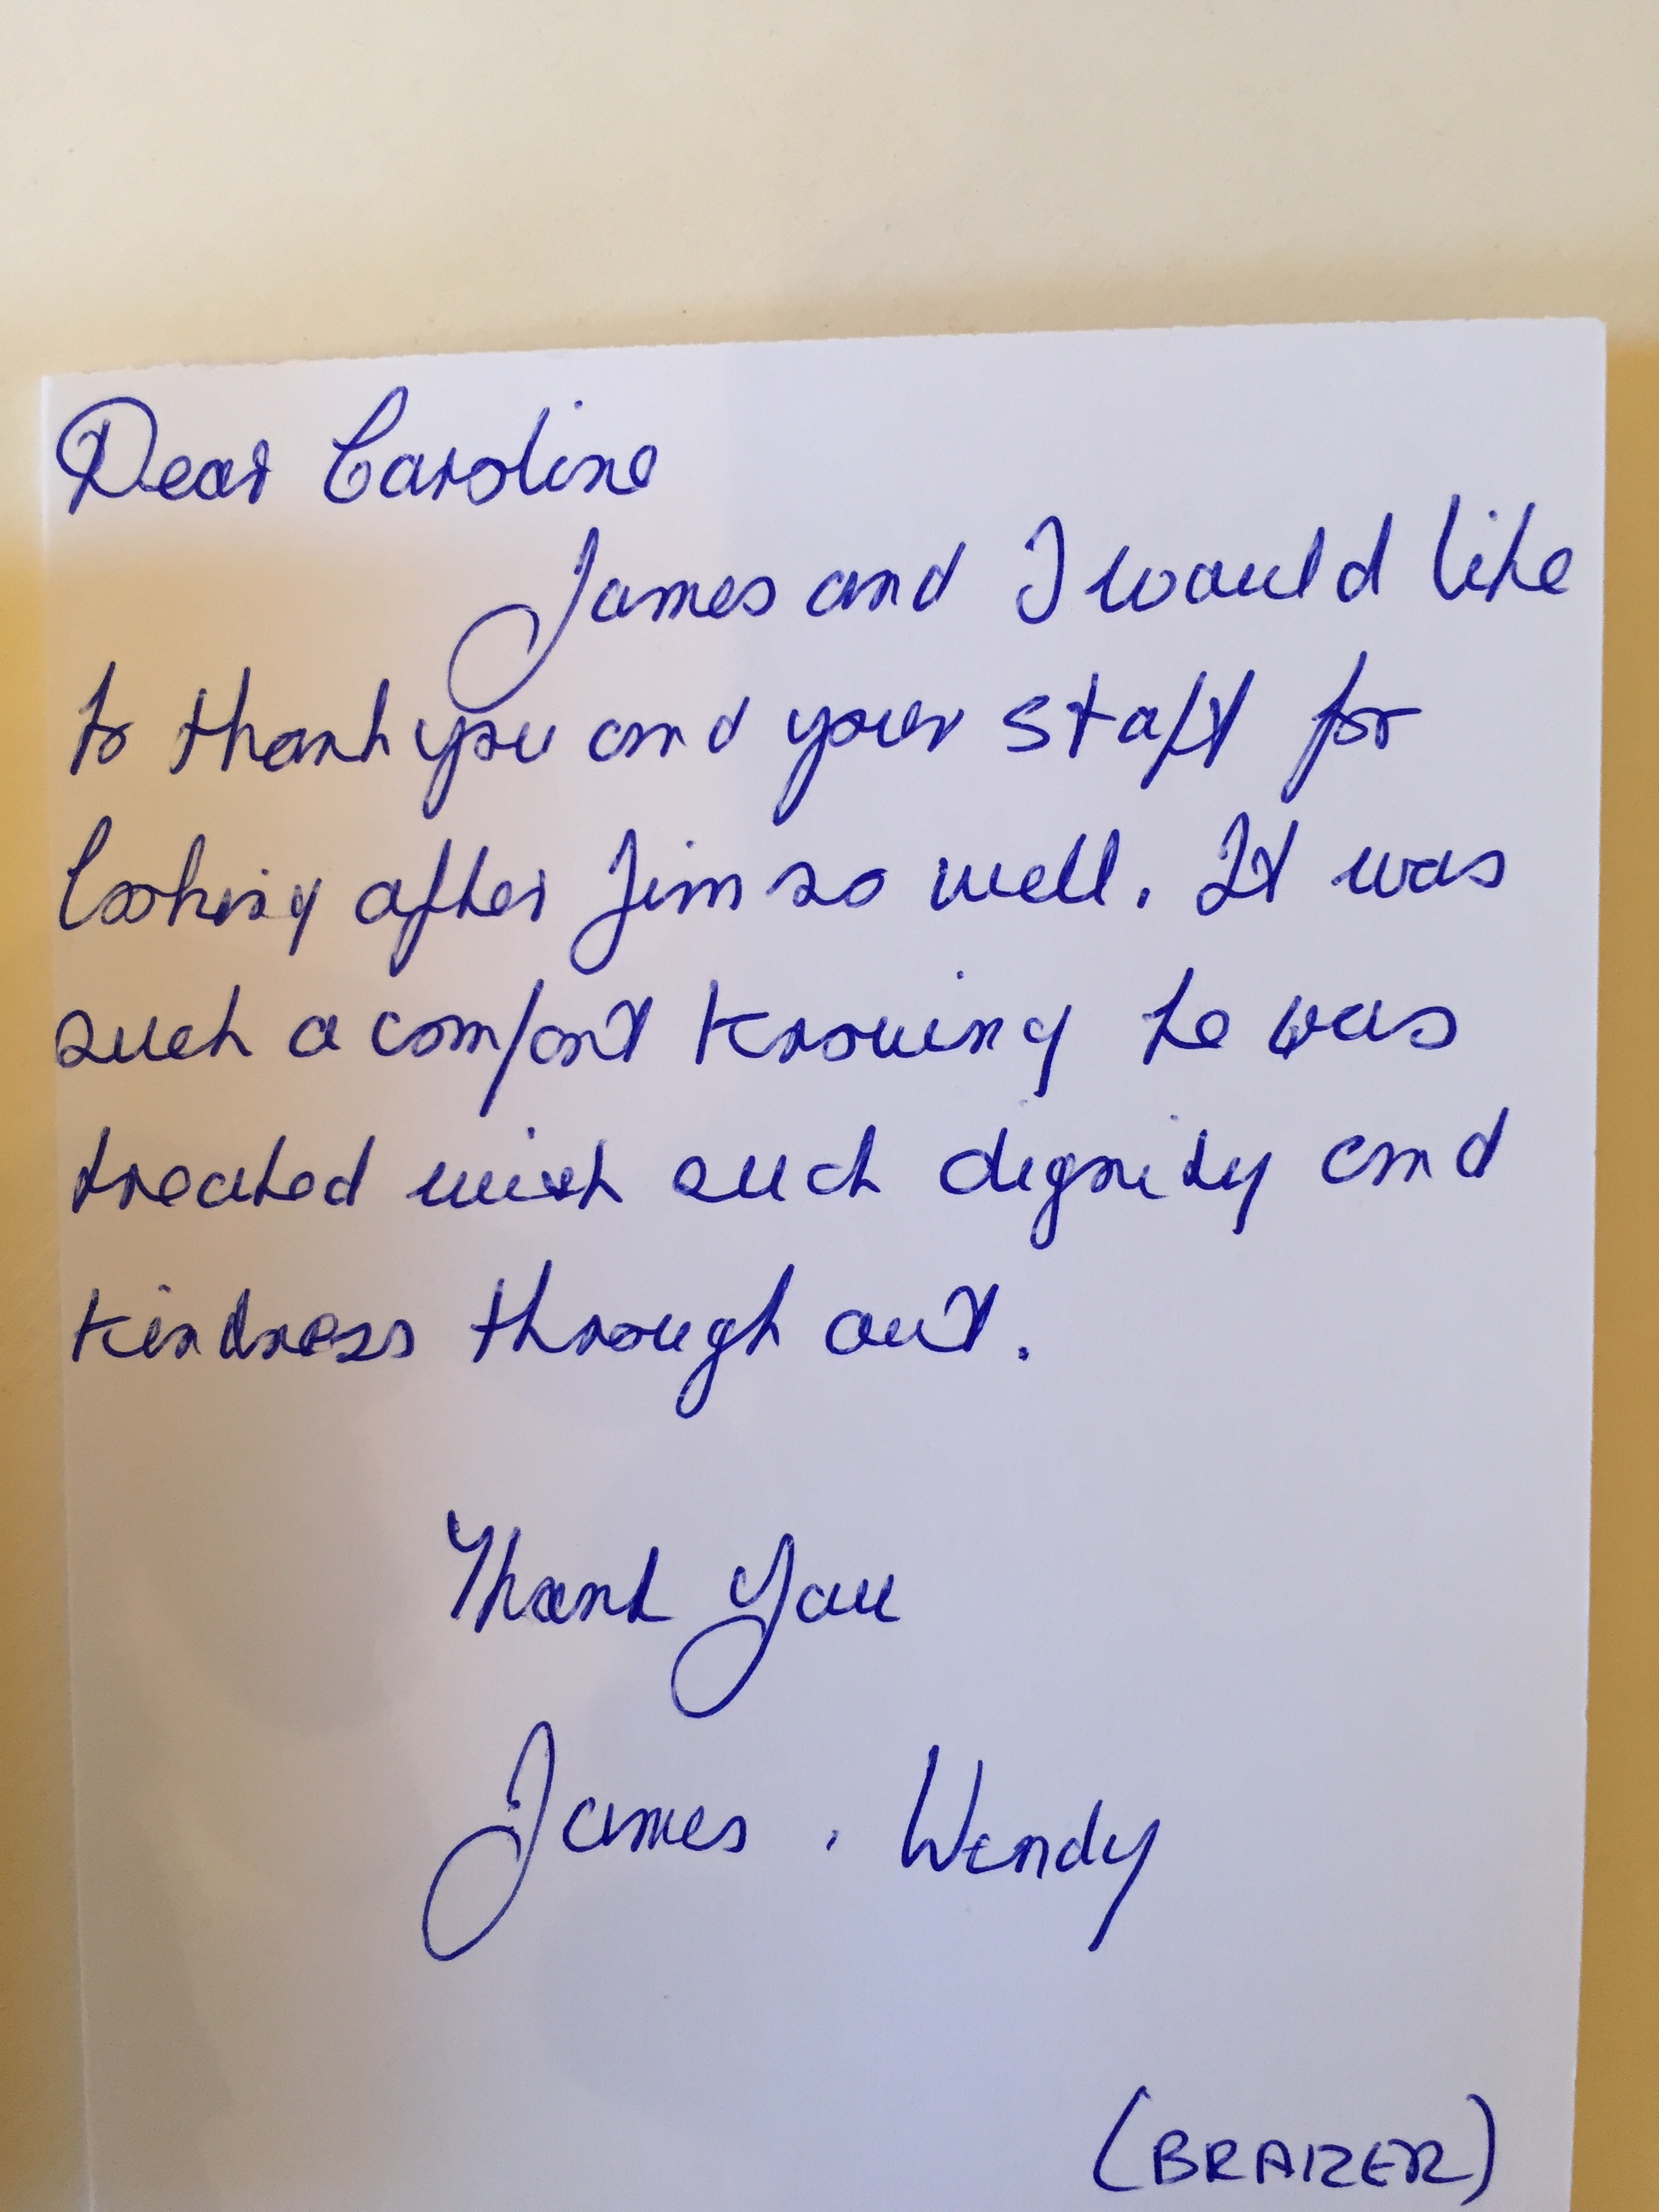 Dear Caroline
James and I would like
to thank you and your staff for
looking after Jim so well. It was
such a comfort knowing he was
treated with such dignity and
kindness through out.
Thank You
James . Wendy
(BRAIZER)